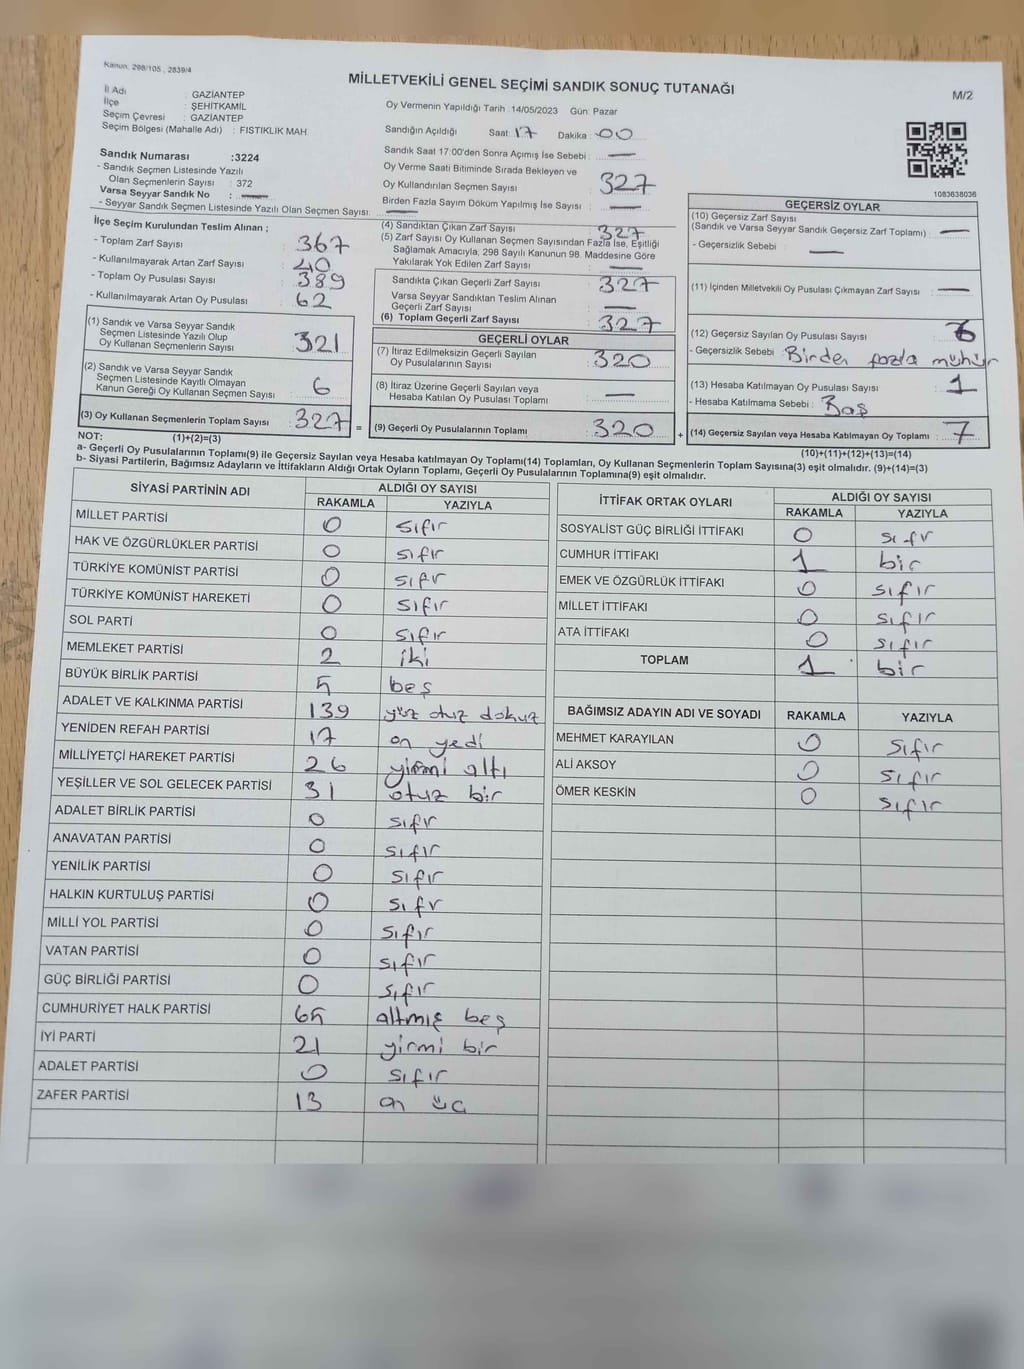 Kanun: 298/105 , 2839/4
MİLLETVEKİLİ GENEL SEÇİMİ SANDIK SONUÇ TUTANAĞI
M/2
İl Adı : GAZİANTEP
İlçe : ŞEHİTKAMİL
Seçim Çevresi : GAZİANTEP
Seçim Bölgesi (Mahalle Adı) : FISTIKLIK MAH
Sandık Numarası :3224
- Sandık Seçmen Listesinde Yazılı
Olan Seçmenlerin Sayısı : 372
Varsa Seyyar Sandık No : —
- Seyyar Sandık Seçmen Listesinde Yazılı Olan Seçmen Sayısı: —
Oy Vermenin Yapıldığı Tarih 14/05/2023 Gün: Pazar
Sandığın Açıldığı Saat: 17 Dakika: 00
Sandık Saat 17:00'den Sonra Açımış İse Sebebi : —
Oy Verme Saati Bitiminde Sırada Bekleyen ve
Oy Kullandırılan Seçmen Sayısı : 327
Birden Fazla Sayım Döküm Yapılmış İse Sayısı : —
1083638036
İlçe Seçim Kurulundan Teslim Alınan ;
- Toplam Zarf Sayısı : 367
- Kullanılmayarak Artan Zarf Sayısı : 40
- Toplam Oy Pusulası Sayısı : 389
- Kullanılmayarak Artan Oy Pusulası : 62
(1) Sandık ve Varsa Seyyar Sandık
Seçmen Listesinde Yazılı Olup
Oy Kullanan Seçmenlerin Sayısı : 321
(2) Sandık ve Varsa Seyyar Sandık
Seçmen Listesinde Kayıtlı Olmayan
Kanun Gereği Oy Kullanan Seçmen Sayısı : 6
(3) Oy Kullanan Seçmenlerin Toplam Sayısı : 327 =
(4) Sandıktan Çıkan Zarf Sayısı : 327
(5) Zarf Sayısı Oy Kullanan Seçmen Sayısından Fazla İse, Eşitliği
Sağlamak Amacıyla, 298 Sayılı Kanunun 98. Maddesine Göre
Yakılarak Yok Edilen Zarf Sayısı : —
Sandıkta Çıkan Geçerli Zarf Sayısı : 327
Varsa Seyyar Sandıktan Teslim Alınan
Geçerli Zarf Sayısı : —
(6) Toplam Geçerli Zarf Sayısı : 327
GEÇERLİ OYLAR
(7) İtiraz Edilmeksizin Geçerli Sayılan
Oy Pusulalarının Sayısı : 320
(8) İtiraz Üzerine Geçerli Sayılan veya
Hesaba Katılan Oy Pusulası Toplamı : —
(9) Geçerli Oy Pusulalarının Toplamı : 320 +
GEÇERSİZ OYLAR
(10) Geçersiz Zarf Sayısı
(Sandık ve Varsa Seyyar Sandık Geçersiz Zarf Toplamı) : —
- Geçersizlik Sebebi : —
(11) İçinden Milletvekili Oy Pusulası Çıkmayan Zarf Sayısı : —
(12) Geçersiz Sayılan Oy Pusulası Sayısı : 6
- Geçersizlik Sebebi : Birden fazla mühür
(13) Hesaba Katılmayan Oy Pusulası Sayısı : 1
- Hesaba Katılmama Sebebi : Boş
(14) Geçersiz Sayılan veya Hesaba Katılmayan Oy Toplamı : 7
NOT: (1)+(2)=(3)
(10)+(11)+(12)+(13)=(14)
a- Geçerli Oy Pusulalarının Toplamı(9) ile Geçersiz Sayılan veya Hesaba katılmayan Oy Toplamı(14) Toplamları, Oy Kullanan Seçmenlerin Toplam Sayısına(3) eşit olmalıdır. (9)+(14)=(3)
b- Siyasi Partilerin, Bağımsız Adayların ve İttifakların Aldığı Ortak Oyların Toplamı, Geçerli Oy Pusulalarının Toplamına(9) eşit olmalıdır.
SİYASİ PARTİNİN ADI ALDIĞI OY SAYISI
RAKAMLA YAZIYLA
MİLLET PARTİSİ 0 sıfır
HAK VE ÖZGÜRLÜKLER PARTİSİ 0 sıfır
TÜRKİYE KOMÜNİST PARTİSİ 0 sıfır
TÜRKİYE KOMÜNİST HAREKETİ 0 sıfır
SOL PARTİ 0 sıfır
MEMLEKET PARTİSİ 2 iki
BÜYÜK BİRLİK PARTİSİ 5 beş
ADALET VE KALKINMA PARTİSİ 139 yüz otuz dokuz
YENİDEN REFAH PARTİSİ 17 on yedi
MİLLİYETÇİ HAREKET PARTİSİ 26 yirmi altı
YEŞİLLER VE SOL GELECEK PARTİSİ 31 otuz bir
ADALET BİRLİK PARTİSİ 0 sıfır
ANAVATAN PARTİSİ 0 sıfır
YENİLİK PARTİSİ 0 sıfır
HALKIN KURTULUŞ PARTİSİ 0 sıfır
MİLLİ YOL PARTİSİ 0 sıfır
VATAN PARTİSİ 0 sıfır
GÜÇ BİRLİĞİ PARTİSİ 0 sıfır
CUMHURİYET HALK PARTİSİ 65 altmış beş
İYİ PARTİ 21 yirmi bir
ADALET PARTİSİ 0 sıfır
ZAFER PARTİSİ 13 on üç
İTTİFAK ORTAK OYLARI ALDIĞI OY SAYISI
RAKAMLA YAZIYLA
SOSYALİST GÜÇ BİRLİĞİ İTTİFAKI 0 sıfır
CUMHUR İTTİFAKI 1 bir
EMEK VE ÖZGÜRLÜK İTTİFAKI 0 sıfır
MİLLET İTTİFAKI 0 sıfır
ATA İTTİFAKI 0 sıfır
TOPLAM 1 bir
BAĞIMSIZ ADAYIN ADI VE SOYADI RAKAMLA YAZIYLA
MEHMET KARAYILAN 0 sıfır
ALİ AKSOY 0 sıfır
ÖMER KESKİN 0 sıfır